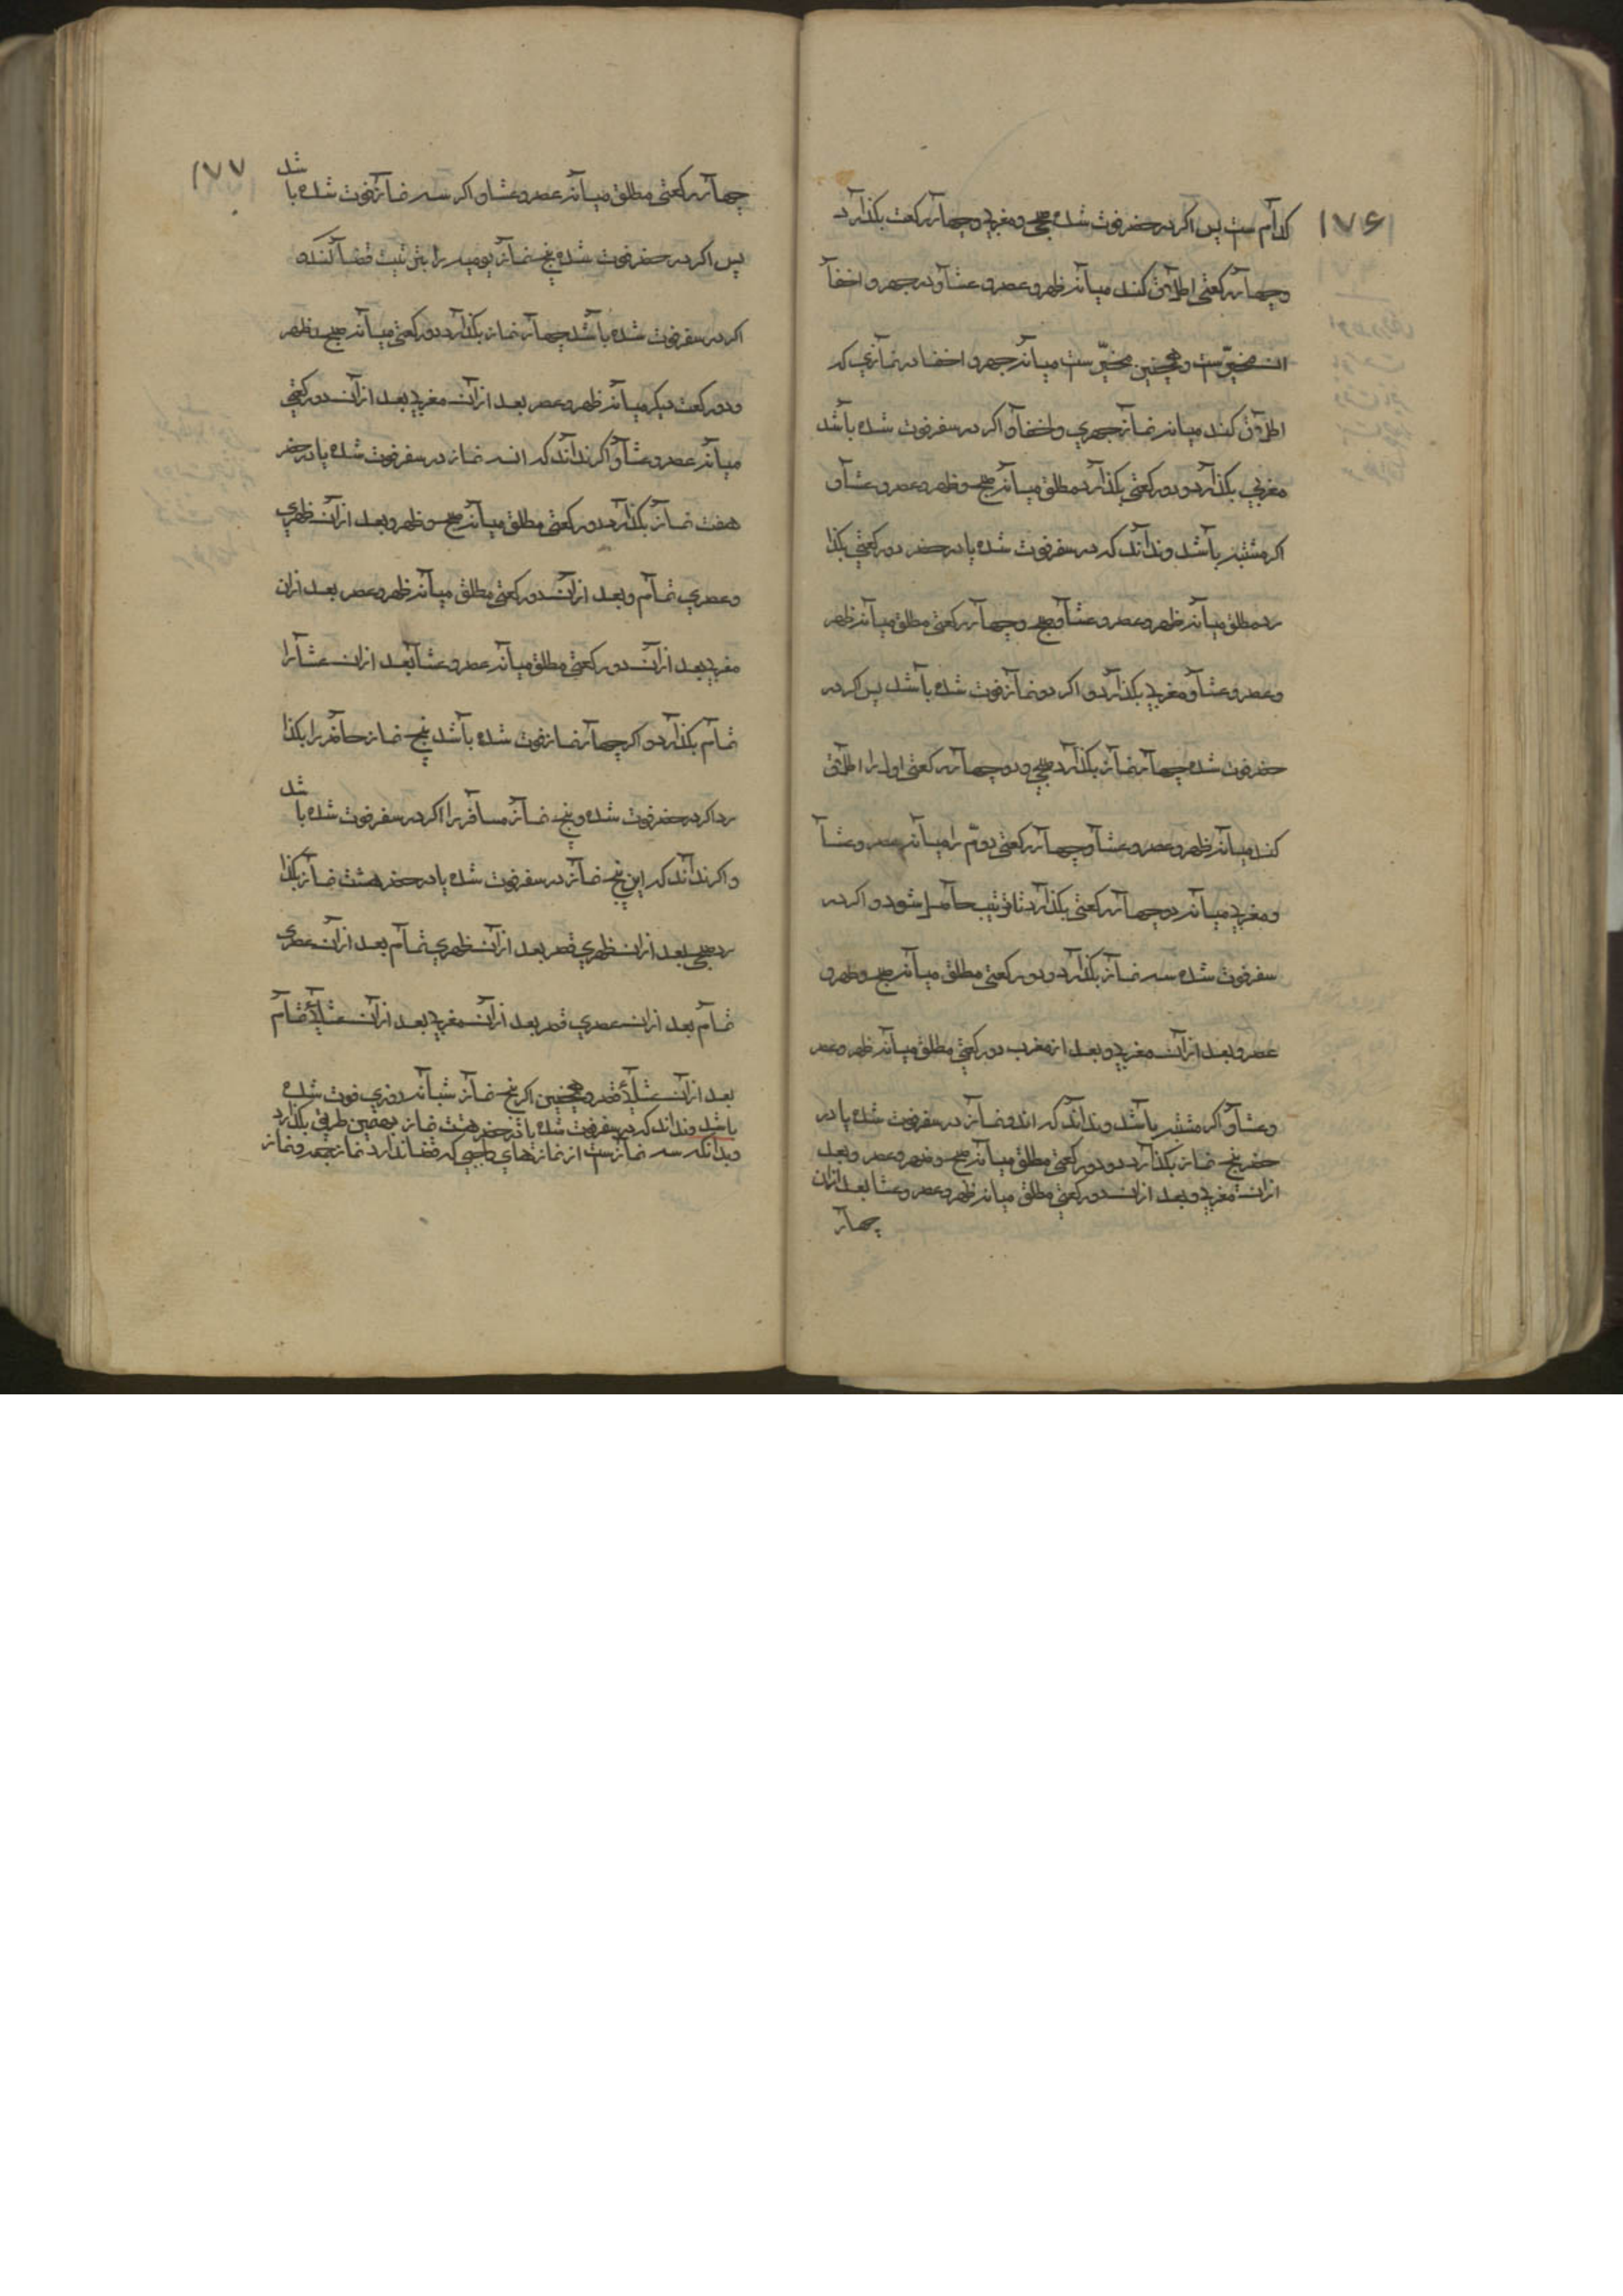 ۱۷۶
کدام ست پس اکر در حضر فوت شده صبحی و مغربی و چهار رکعت بکذارد
و چهار رکعتی اطلاق کند میانه ظهر و عصر و عشا و در جهر و اخفا
ان مخیّر ست و همچنین مخیّر ست میانه جهر و اخفا در نمازی که
اطلاق کند میانه نماز جهری و اخفا و اکر در سفر فوت شده باشد
مغربی بکذارد و دو رکعتی بکذارد مطلق میانه صبح و ظهر و عصر و عشا و
اکر مشتبه باشد و نداند که در سفر فوت شده یا در حضر دو رکعتی بکذا
رد مطلق میانه ظهر و عصر و عشا و صبح و چهار رکعتی مطلق میانه ظهر
و عصر و عشا و مغربی بکذارد و اکر دو نماز فوت شده باشد پس اکر در
حضر فوت شده چهار نماز بکذارد صبحی و دو چهار رکعتی اول را اطلاق
کند میانه ظهر و عصر و عشا و چهار رکعتی دوّم را میانه عصر و عشا
و مغربی میانه دو چهار رکعتی بکذارد تا ترتیب حاصل شود و اکر در
سفر فوت شده سه نماز بکذارد دو رکعتی مطلق میانه صبح و ظهر و
عصر و بعد از ان مغربی و بعد از مغرب دو رکعتی مطلق میانه ظهر و عصر
و عشا و اکر مشتبه باشد و نداند که ان دو نماز در سفر فوت شده یا در
حضر پنج نماز بکذارد دو رکعتی مطلق میانه صبح و ظهر و عصر و بعد
از ان مغربی و بعد از ان دو رکعتی مطلق میانه ظهر و عصر و عشا بعد از ان
چهار
۱۷۷
چهار رکعتی مطلق میانه عصر و عشا و اکر سه نماز فوت شده باشد
پس اکر در حضر فوت شده پنج نماز یومیه را بترتیب قضا کند و
اکر در سفر فوت شده باشد چهار نماز بکذارد دو رکعتی میانه صبح و ظهر
و دو رکعت دیکر میانه ظهر و عصر بعد از ان مغربی بعد از ان دو رکعتی
میانه عصر و عشا و اکر نداند که ان سه نماز در سفر فوت شده یا در حضر
هفت نماز بکذارد دو رکعتی مطلق میانه صبح و ظهر و بعد از ان ظهری
و عصری تمام و بعد از ان دو رکعتی مطلق میانه ظهر و عصر بعد از ان
مغربی بعد از ان دو رکعتی مطلق میانه عصر و عشا بعد از ان عشا را
تمام بکذارد و اکر چهار نماز فوت شده باشد پنج نماز حاضر را بکذا
رد اکر در حضر فوت شده و پنج نماز مسافر را اکر در سفر فوت شده باشد
و اکر نداند که این پنج نماز در سفر فوت شده یا در حضر هشت نماز بکذا
رد صبحی بعد از ان ظهری قصر بعد از ان ظهری تمام بعد از ان عصری
تمام بعد از ان عصری قصر بعد از ان مغربی بعد از ان عشائی تمام
بعد از ان عشائی قصر و همچنین اکر پنج نماز شبانه روزی فوت شده
باشد و نداند که در سفر فوت شده یا در حضر هشت نماز بهمین طریق بکذارد
و بدانکه سه نماز ست از نمازهای واجبی که قضا ندارد نماز جمعه و نماز